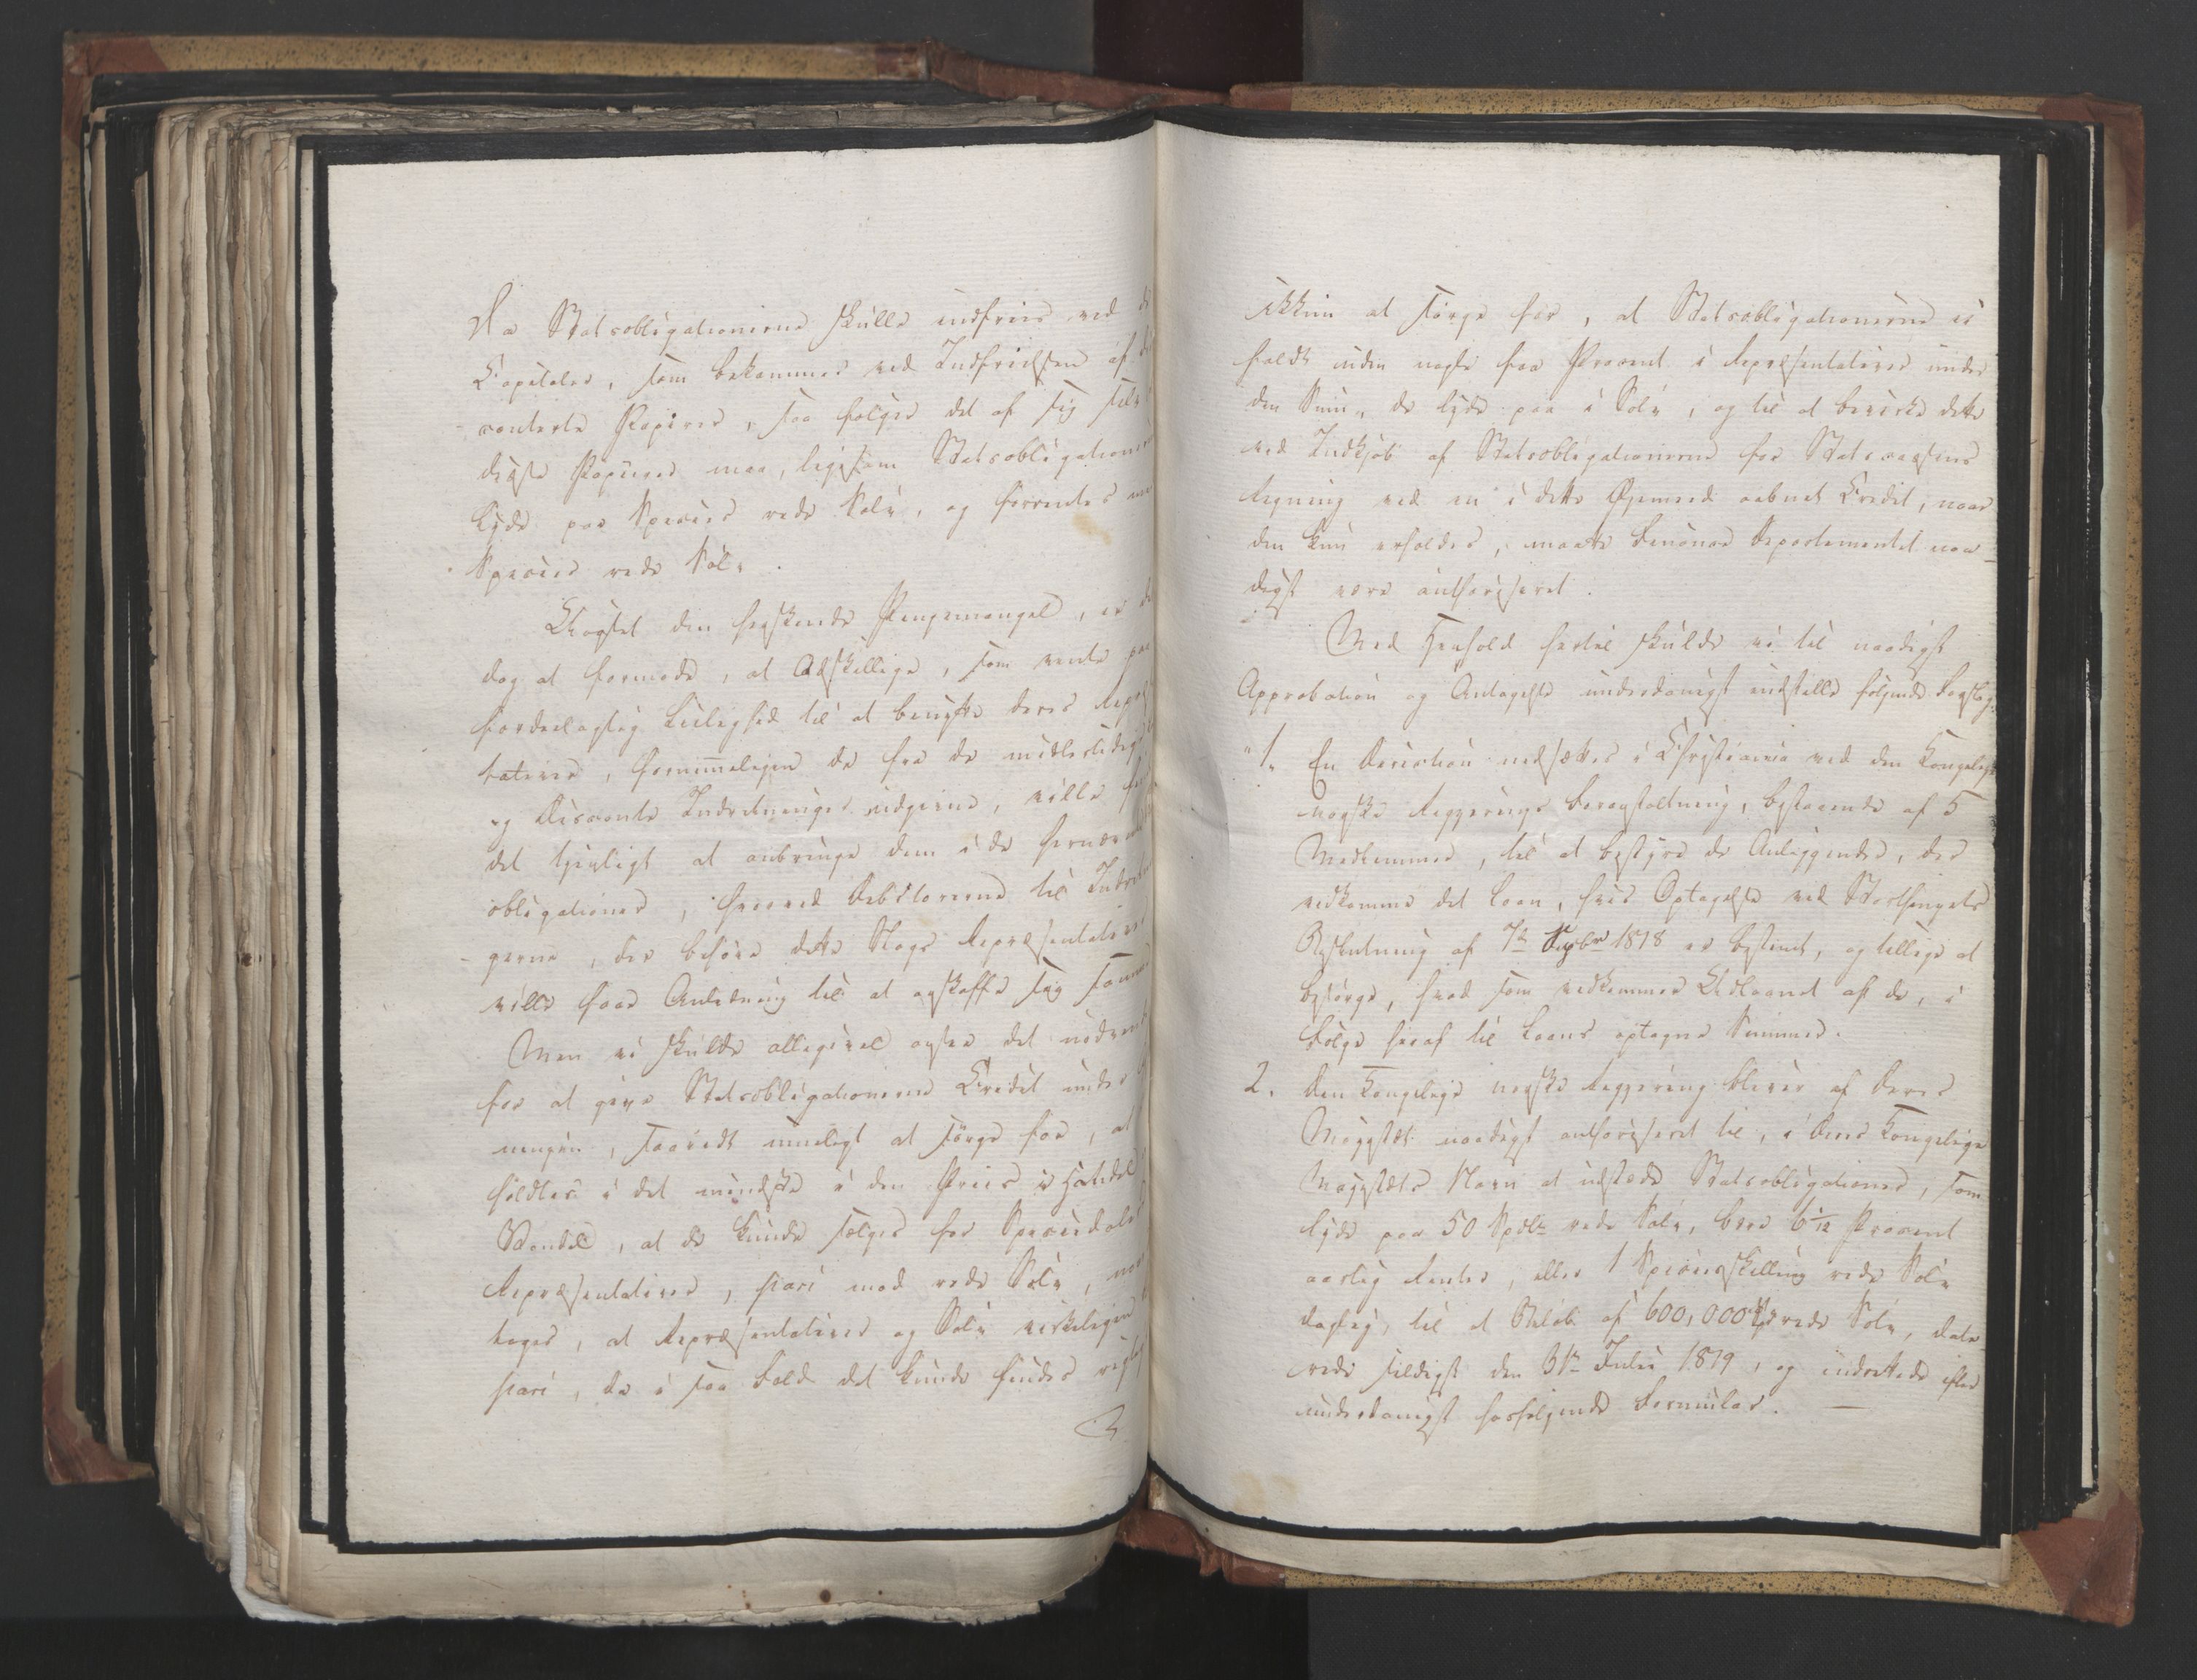 Da Statsobligationerne skulle indfries ved de
Capitaler, som bekommes ved Indfrielsen af dis
conterte Papirer, saa følger det af sig selv
disse Papirer maa, ligesom Statsobligationerne
lyde paa Species rede Sølv, og forrentes med
Species rede Sølv.
Uagtet den herskende Pengemangel, er det
dog at formode, at Adskillige, som vente paa
fordeelagtig Leilighed til at benytte deres Repræsen
tativer, fornemmeligen de fra de midlertidige
og Disconto Indretninger udgivne, ville finde
det tjenligt at anbringe dem i de
obligationer, hvorved Debitorerne til Indretnin
gerne, der behøve dette Slags Repræsentativer
ville faae Anledning til at anskaffe sig samme
Men vi skulde alligevel agte det nødvendigt
for at give Statsobligationerne Credit under
ningen, saavidt mueligt at sørge for, at
holdtes i det mindste i den Priis i Handel
Vandel, at de kunde sælges for Speciedaler
Repræsentativer, pari mod rede Sølv, naar
tages, at Repræsentativer og Sølv virkeligen
pari, da i saa Fald det kunde findes vigtig
at sørge for, at Statsobligationerne ei
faldt uden nogle faa Procent i Repræsentativer under
den Sum, de lyde paa i Sølv, og til at bevirke dette
ved Indkjøb af Statsobligationerne for Statscassens
Regning ved en i dette Øjemed aabnet Credit, naar
den kun erholdes, maatte Finance Departementet naa-
digst være authoriseret.
Med Henhold hertil skulde vi til naadigst
Approbation og Antagelse underdanigst indstille følgende Forslag:
"1. En Direction nedsættes i Christiania ved den Kongelige
norske Regjerings Foranstaltning, bestaaende af 5
Medlemmer, til at bestyre de Anliggender, der
vedkomme det Laan, hvis Optagelse ved Storthingets
Beslutning af 7de Septbr 1818 er bestemt, og tillige at
besørge, hvad som vedkommer Udlaanet af de, i
Følge heraf til Laans optagne Summer.
2. Den Kongelige norske Regjering bliver af Deres
Majestæt naadigst authoriseret til, i Deres Kongelige
Majestæts Navn at udstæde Statsobligationer, som
lyde paa 50 Spdlr rede Sølv, bære 6 1/12 Procent
aarlig Renter, eller 1 Specieskilling rede Sølv
daglig, til et Beløb af 600,000 Spd rede Sølv, date-
rede sildigst den 31te Julii 1819, og indrettede efter
underdanigst hosfølgende Formular. —